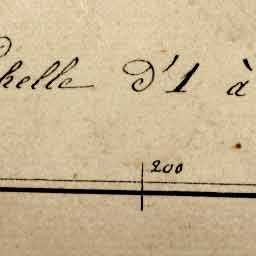 chelle d'1 à
200